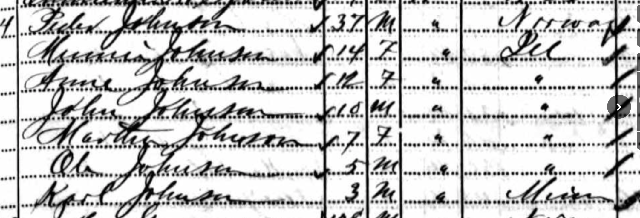 4 Peder Johnson 37 M " Norway
Minnie Johnson 14 F " Ill
Anne Johnson 12 F " "
John Johnson 10 M " "
Martha Johnson 7 F " "
Ole Johnson 5 M " "
Karl Johnson 3 M " Minn